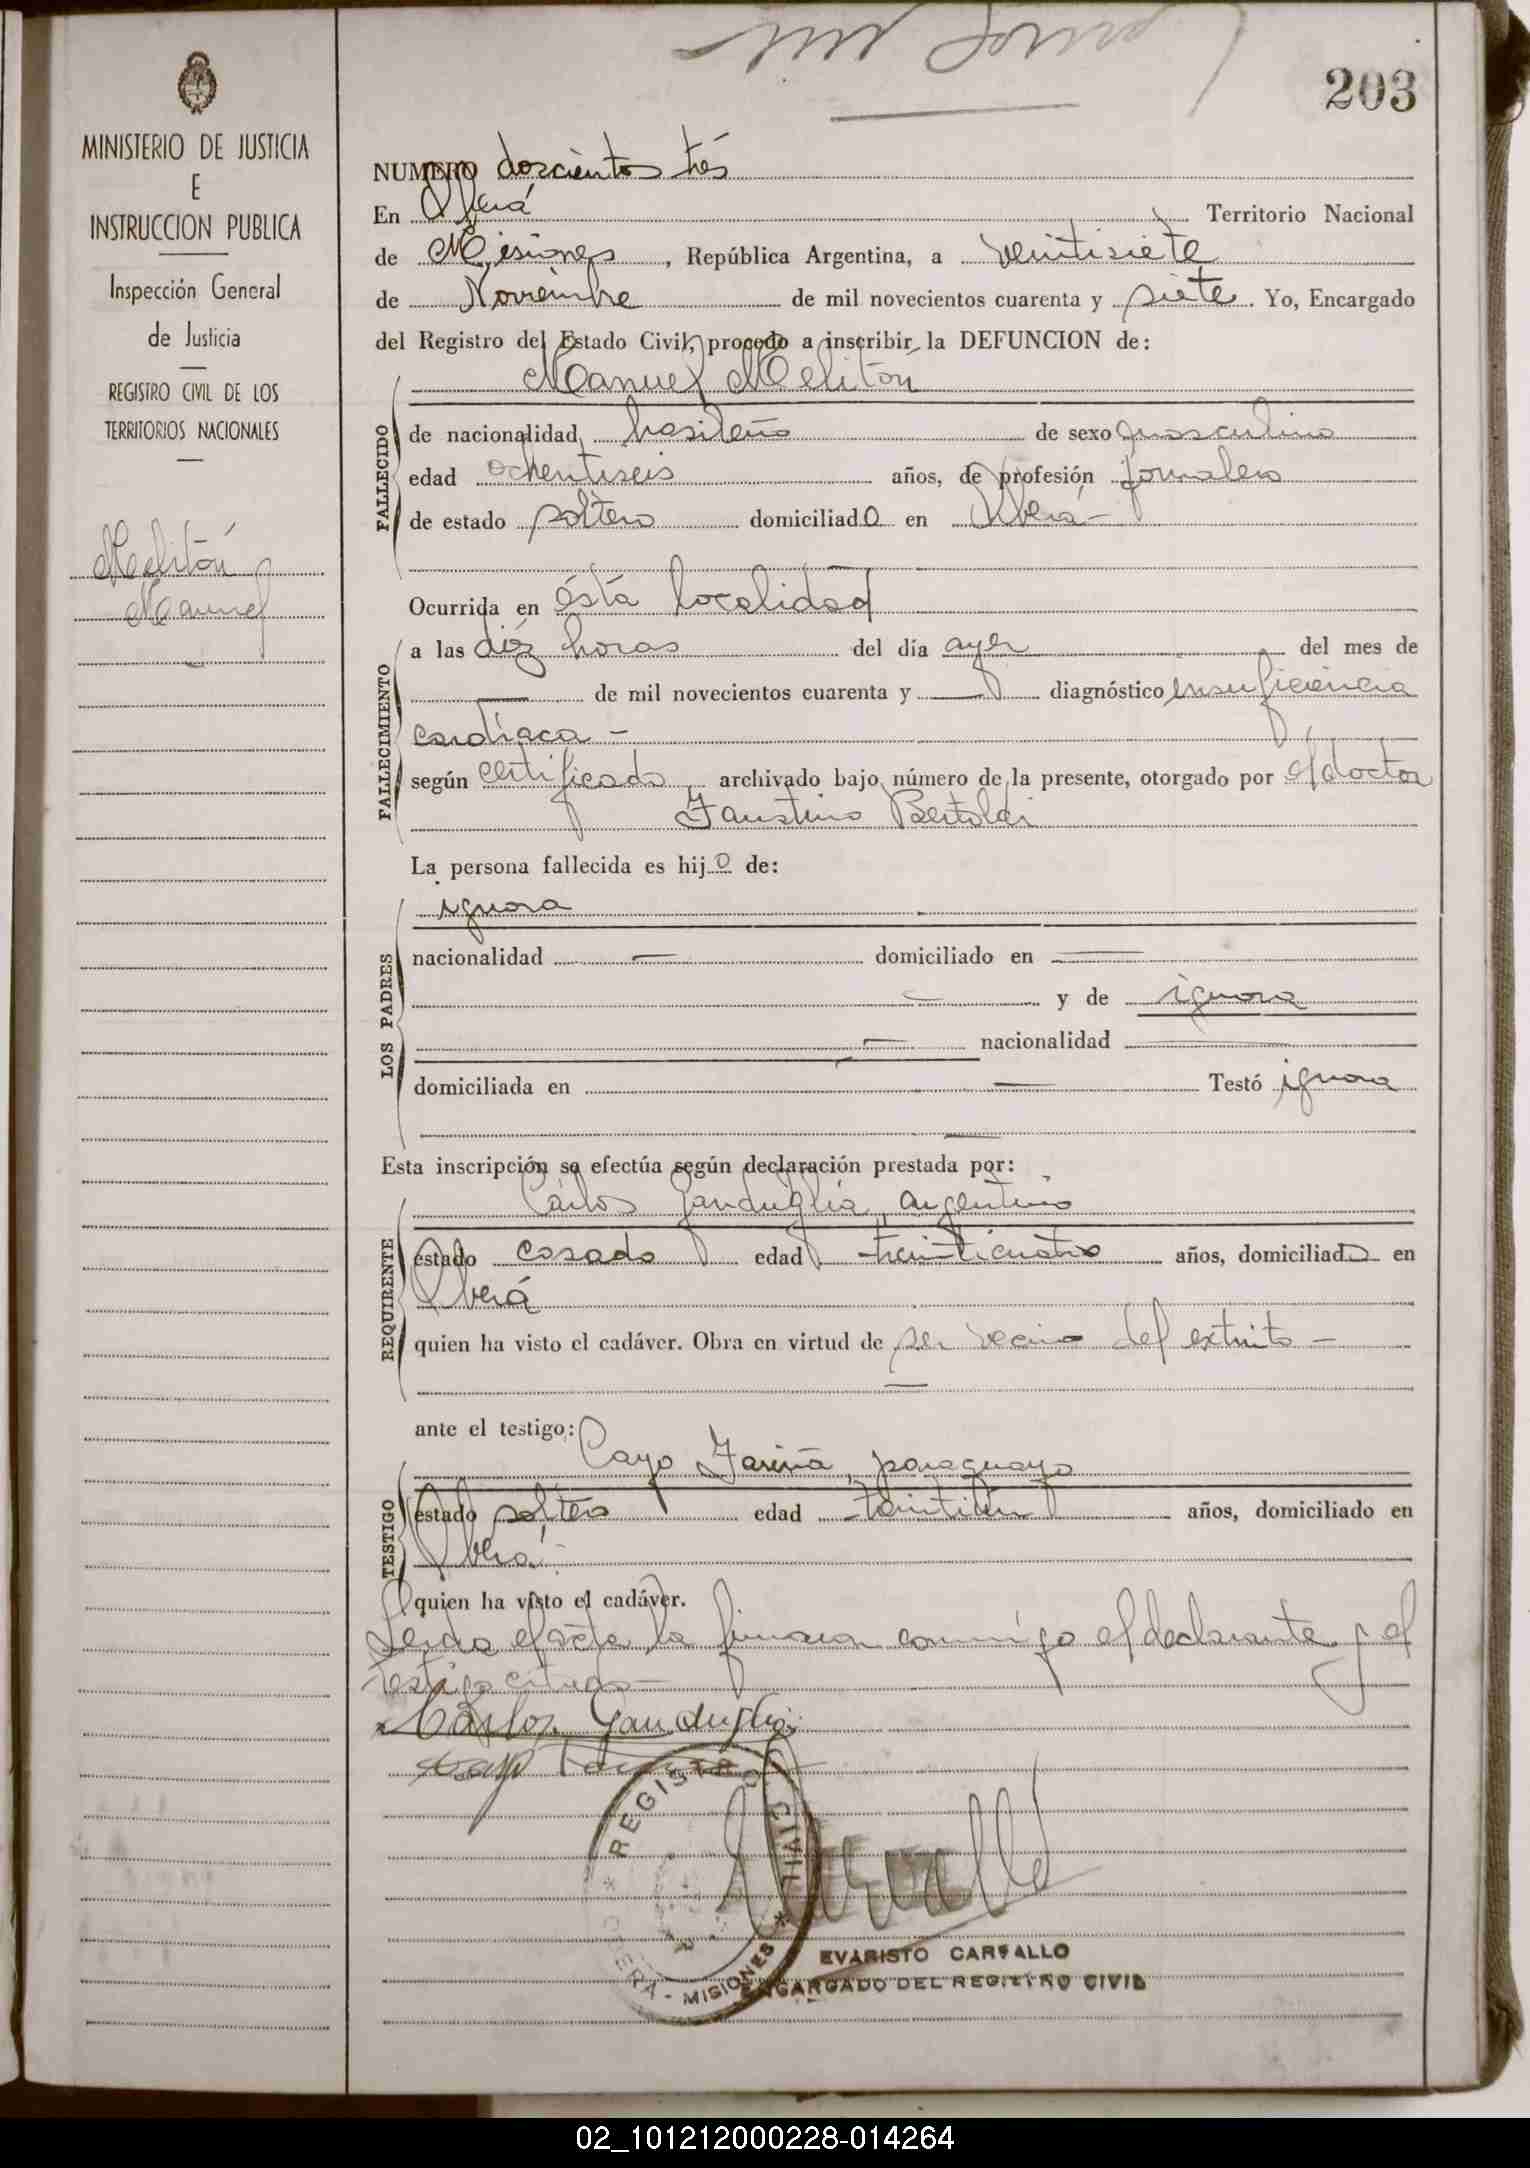 203
MINISTERIO DE JUSTICIA
E
INSTRUCCION PUBLICA
Inspección General
de Justicia
REGISTRO CIVIL DE LOS
TERRITORIOS NACIONALES
Melitón
Manuel
NUMERO doscientos trés
En Oberá Territorio Nacional
de Misiones, República Argentina, a veintisiete
de Noviembre de mil novecientos cuarenta y siete. Yo, Encargado
del Registro del Estado Civil, procedo a inscribir la DEFUNCION de:
Manuel Melitón
FALLECIDO
de nacionalidad brasileño de sexo masculino
edad ochentiseis años, de profesión jornalero
de estado soltero domiciliado en Oberá-
Ocurrida en ésta localidad
FALLECIMIENTO
a las diéz horas del día ayer del mes de
— de mil novecientos cuarenta y — diagnóstico insuficiencia
cardíaca -
según certificado archivado bajo número de la presente, otorgado por el doctor
Faustino Bertoldi
La persona fallecida es hijo de:
LOS PADRES
ignora
nacionalidad — domiciliado en —
— y de ignora
— nacionalidad —
domiciliada en — Testó ignora
—
Esta inscripción se efectúa según declaración prestada por:
REQUIRENTE
Cárlos Ganduglia, argentino
estado casado edad treinticuatro años, domiciliado en
Oberá
quien ha visto el cadáver. Obra en virtud de ser vecino del extinto -
—
ante el testigo:
TESTIGO
Cayo Fariña, paraguayo
estado soltero edad treintiún años, domiciliado en
Oberá.-
quien ha visto el cadáver.
Leida el acta la firmaron conmigo el declarante y el
testigo citado-
Carlos Ganduglia
REGISTRO CIVIL
* OBERA - MISIONES *
EVARISTO CARVALLO
ENCARGADO DEL REGISTRO CIVIL
02_101212000228-014264